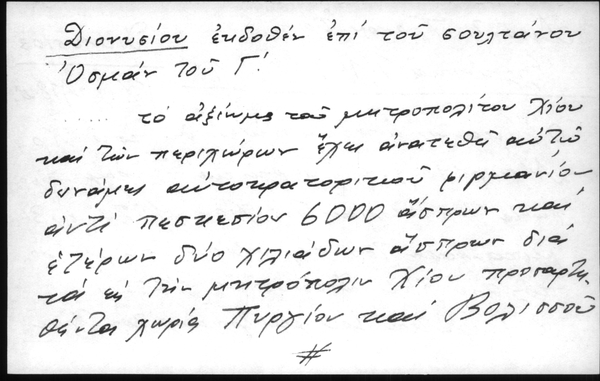 Διονυσίου ἐκδοθέν ἐπί τοῦ σουλτάνου
Ὀσμάν τοῦ Γ!
..... τό ἀξίωμα τοῦ μητροπολίτου Χίου
καί τῶν περιχώρων ἔχει ἀνατεθῆ αὐτῷ
δυνάμει αὐτοκρατορικοῦ φιρμανίου
ἀντί πεσκεσίου 6000 ἄσπρων καί
ἑτέρων δύο χιλιάδων ἄσπρων διά
τά εἰς τήν μητρόπολιν Χίου προσαρτη-
θέντα χωρία Πυργίου καί Βολισσοῦ
#